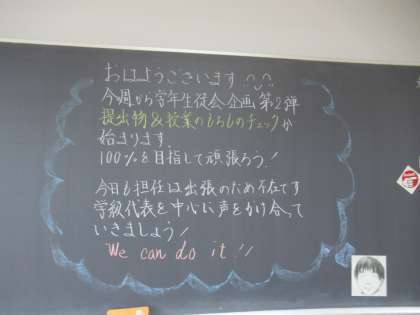 おはようございます
今週から学年生徒会企画第2弾
提出物&授業のもちものチェックが
始まります。
100%を目指して頑張ろう!
今日も担任は出張のため不在です
学級代表を中心に声をかけ合って
いきましょう!
We can do it!!